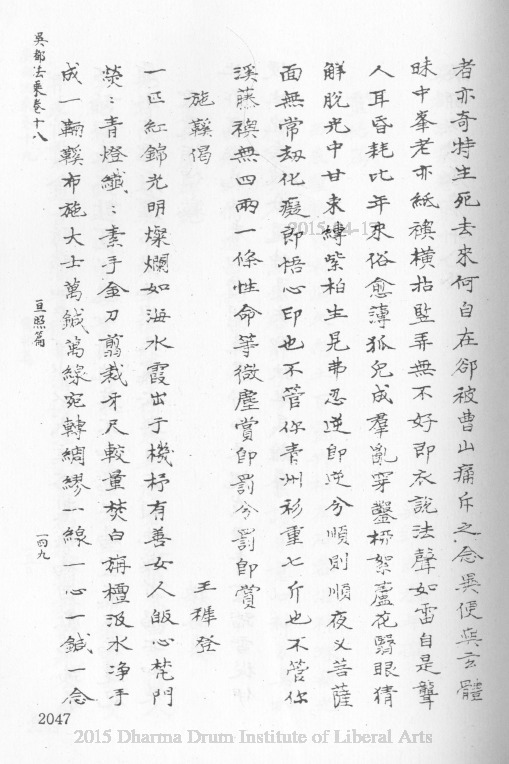 者亦奇特生死去來何自在卻被曹山痛斥之念吳便與玄體
昧中峯老亦紙襖橫拈竪弄無不好即衣說法聲如雷自是聾
人耳昏耗比年來俗愈薄狐兒成羣亂穿鑿楊絮蘆花翳眼猜
解脫光中甘束縛紫柏生晃弗忍逆即逆兮順則順夜义菩薩
面無常劫化癡即悟心印也不管你青州衫重七斤也不管你
溪藤襖無四兩一條性命等微塵賞即罰兮罰即賞
施鞵偈
王穉登
一匹紅錦光明燦爛如海水霞出于機杼有善女人皈心梵門
熒：青燈纖：素手金刀翦裁牙尺較量焚白旃檀汲水净手
成一緉鞵布施大士萬鍼萬線宛轉綢繆一線一心一鍼一念
吳都法乘卷十八
亘照篇
一四九
2047
2015-04-17
2015 Dharma Drum Institute of Liberal Arts